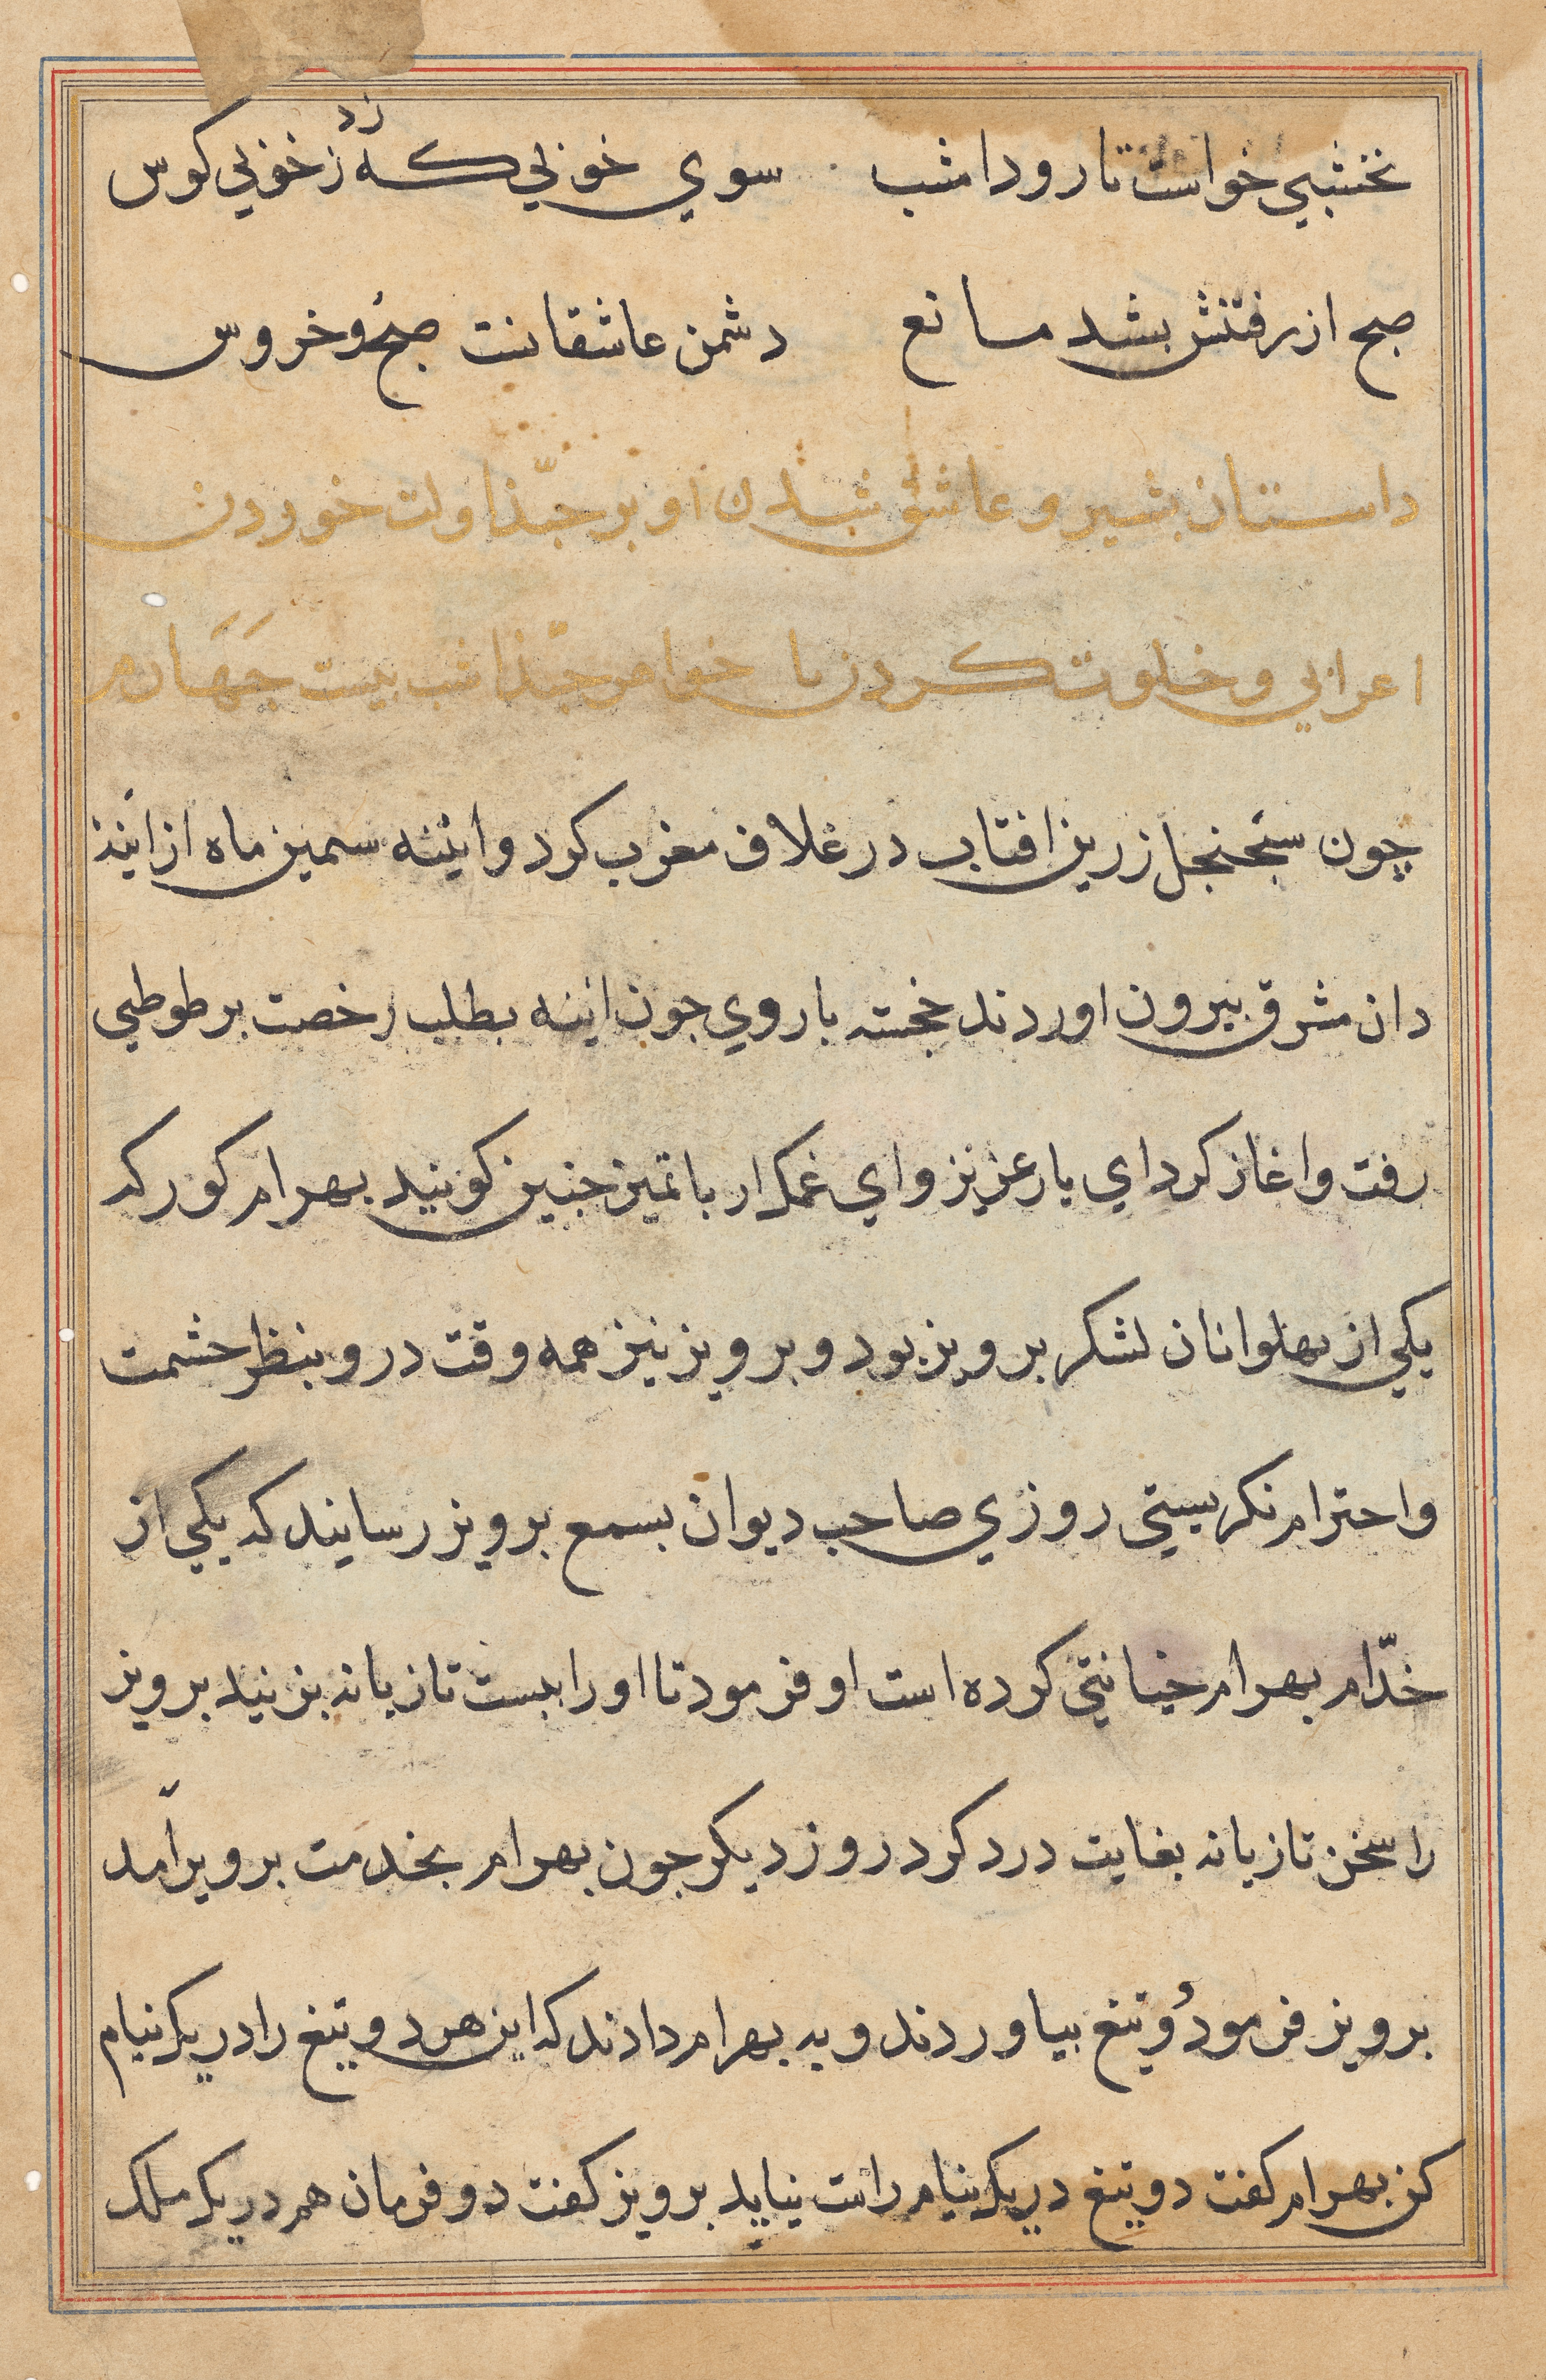 نخشبي خواست تا رود امشب سوي خوبي كه زد ز خوبي كوس
صبح از رفتنش بشد مانع دشمن عاشقانت صبح و خروس
داستان بشير و عاشق شدن او بر جبّذا ولت خوردن
اعرابي و خلوت كردن با خواهر جبّذا شب بيست چَهَارم
چون سجنجل زرين افتاب در غلاف مغرب كرد و اينه سمين ماه از اينه
دان مشرق بيرون اوردند خجسته با روي جون اينه بطلب رخصت بر طوطي
رفت و اغاز كرد اي يار عزيز و اي غمكسار با تميز جنين كويند بهرام كور كه
يكي از پهلوانان لشكر برويز بود و برويز نيز همه وقت درو بنظر حشمت
و احترام نكريستي روزي صاحب ديوان بسمع برويز رسانيد كه يكي از
خدّام بهرام خيانتي كرده است او فرمود تا او را بيست تازيانه بزنند برويز
را سخن تازيانه بغايت درد كرد روز ديكر جون بهرام بخدمت برويز آمد
برويز فرمود دو تيغ بياوردند و به بهرام دادند كه اين هر دو تيغ را در يك نيام
كن بهرام كفت دو تيغ در يك نيام راست نيايد برويز كفت دو فرمان هم در يك ملك